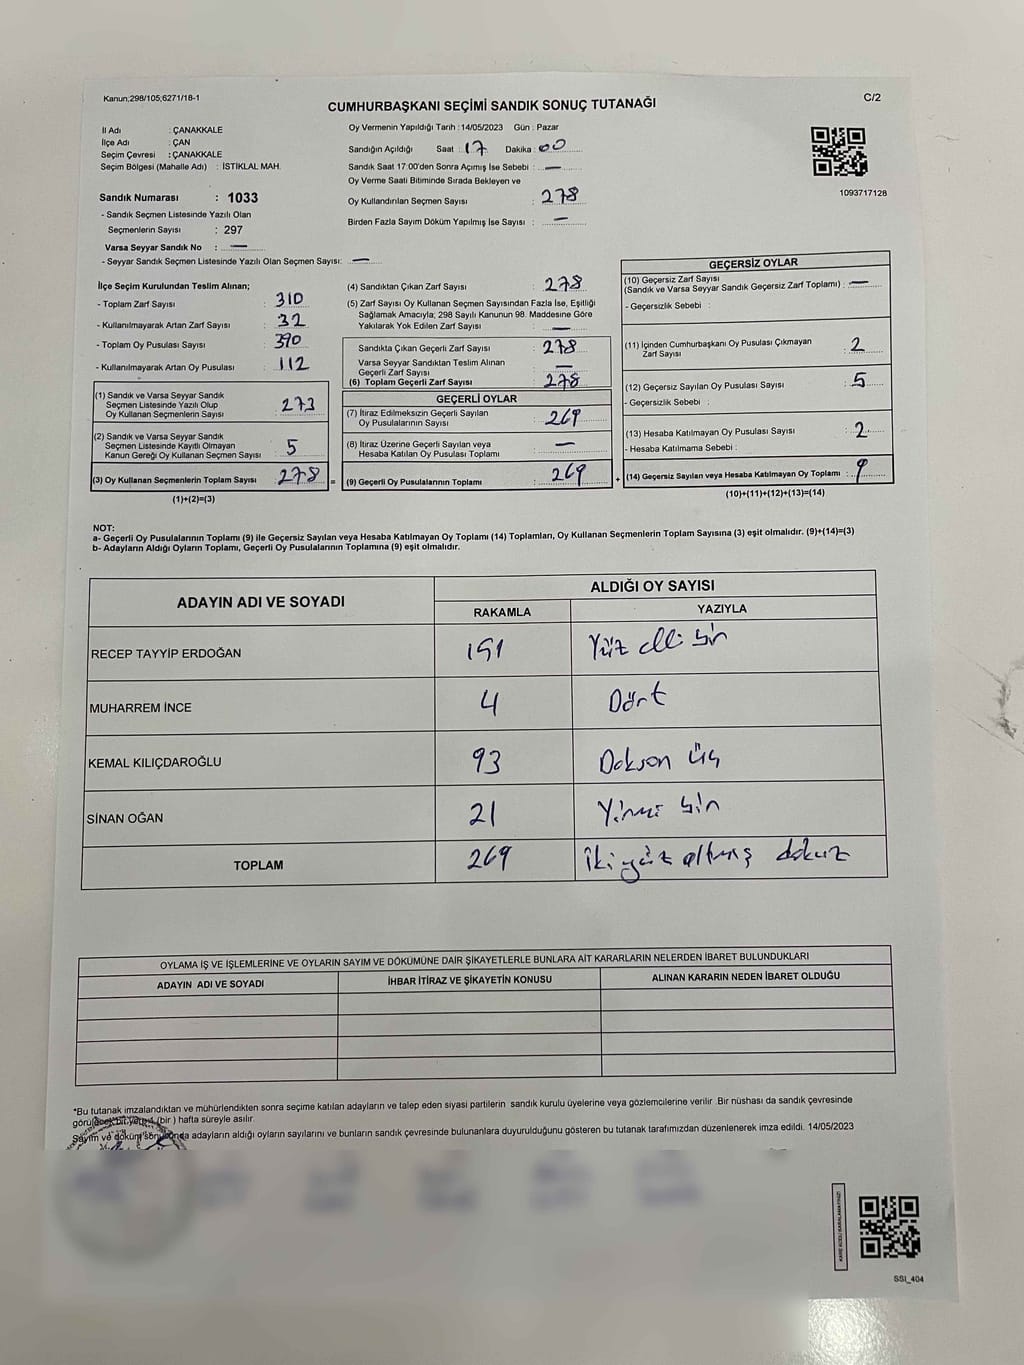 Kanun;298/105;6271/18-1
C/2
CUMHURBAŞKANI SEÇİMİ SANDIK SONUÇ TUTANAĞI
İl Adı : ÇANAKKALE
İlçe Adı : ÇAN
Seçim Çevresi : ÇANAKKALE
Seçim Bölgesi (Mahalle Adı) : İSTİKLAL MAH.
Sandık Numarası : 1033
- Sandık Seçmen Listesinde Yazılı Olan
Seçmenlerin Sayısı : 297
Varsa Seyyar Sandık No : —
- Seyyar Sandık Seçmen Listesinde Yazılı Olan Seçmen Sayısı: —
Oy Vermenin Yapıldığı Tarih : 14/05/2023 Gün : Pazar
Sandığın Açıldığı Saat : 17 Dakika : 00
Sandık Saat 17:00'den Sonra Açımış İse Sebebi : —
Oy Verme Saati Bitiminde Sırada Bekleyen ve
Oy Kullandırılan Seçmen Sayısı : 278
Birden Fazla Sayım Döküm Yapılmış İse Sayısı : —
1093717128
İlçe Seçim Kurulundan Teslim Alınan;
- Toplam Zarf Sayısı : 310
- Kullanılmayarak Artan Zarf Sayısı : 32
- Toplam Oy Pusulası Sayısı : 390
- Kullanılmayarak Artan Oy Pusulası : 112
(1) Sandık ve Varsa Seyyar Sandık
Seçmen Listesinde Yazılı Olup
Oy Kullanan Seçmenlerin Sayısı : 273
(2) Sandık ve Varsa Seyyar Sandık
Seçmen Listesinde Kayıtlı Olmayan
Kanun Gereği Oy Kullanan Seçmen Sayısı : 5
(3) Oy Kullanan Seçmenlerin Toplam Sayısı : 278 =
(1)+(2)=(3)
(4) Sandıktan Çıkan Zarf Sayısı : 278
(5) Zarf Sayısı Oy Kullanan Seçmen Sayısından Fazla İse, Eşitliği
Sağlamak Amacıyla; 298 Sayılı Kanunun 98. Maddesine Göre
Yakılarak Yok Edilen Zarf Sayısı : —
Sandıkta Çıkan Geçerli Zarf Sayısı : 278
Varsa Seyyar Sandıktan Teslim Alınan
Geçerli Zarf Sayısı : —
(6) Toplam Geçerli Zarf Sayısı : 278
GEÇERLİ OYLAR
(7) İtiraz Edilmeksizin Geçerli Sayılan
Oy Pusulalarının Sayısı : 269
(8) İtiraz Üzerine Geçerli Sayılan veya
Hesaba Katılan Oy Pusulası Toplamı : —
(9) Geçerli Oy Pusulalarının Toplamı : 269 +
GEÇERSİZ OYLAR
(10) Geçersiz Zarf Sayısı
(Sandık ve Varsa Seyyar Sandık Geçersiz Zarf Toplamı) : —
- Geçersizlik Sebebi :
(11) İçinden Cumhurbaşkanı Oy Pusulası Çıkmayan
Zarf Sayısı : 2
(12) Geçersiz Sayılan Oy Pusulası Sayısı : 5
- Geçersizlik Sebebi :
(13) Hesaba Katılmayan Oy Pusulası Sayısı : 2
- Hesaba Katılmama Sebebi :
(14) Geçersiz Sayılan veya Hesaba Katılmayan Oy Toplamı : 9
(10)+(11)+(12)+(13)=(14)
NOT:
a- Geçerli Oy Pusulalarının Toplamı (9) ile Geçersiz Sayılan veya Hesaba Katılmayan Oy Toplamı (14) Toplamları, Oy Kullanan Seçmenlerin Toplam Sayısına (3) eşit olmalıdır. (9)+(14)=(3)
b- Adayların Aldığı Oyların Toplamı, Geçerli Oy Pusulalarının Toplamına (9) eşit olmalıdır.
ADAYIN ADI VE SOYADI
ALDIĞI OY SAYISI
RAKAMLA YAZIYLA
RECEP TAYYİP ERDOĞAN 151 Yüz elli bir
MUHARREM İNCE 4 Dört
KEMAL KILIÇDAROĞLU 93 Doksan üç
SİNAN OĞAN 21 Yirmi bir
TOPLAM 269 İki yüz altmış dokuz
OYLAMA İŞ VE İŞLEMLERİNE VE OYLARIN SAYIM VE DÖKÜMÜNE DAİR ŞİKAYETLERLE BUNLARA AİT KARARLARIN NELERDEN İBARET BULUNDUKLARI
ADAYIN ADI VE SOYADI İHBAR İTİRAZ VE ŞİKAYETİN KONUSU ALINAN KARARIN NEDEN İBARET OLDUĞU
*Bu tutanak imzalandıktan ve mühürlendikten sonra seçime katılan adayların ve talep eden siyasi partilerin sandık kurulu üyelerine veya gözlemcilerine verilir .Bir nüshası da sandık çevresinde
(bir ) hafta süreyle asılır.
Sayım ve döküm sonucunda adayların aldığı oyların sayılarını ve bunların sandık çevresinde bulunanlara duyurulduğunu gösteren bu tutanak tarafımızdan düzenlenerek imza edildi. 14/05/2023
SSI_404